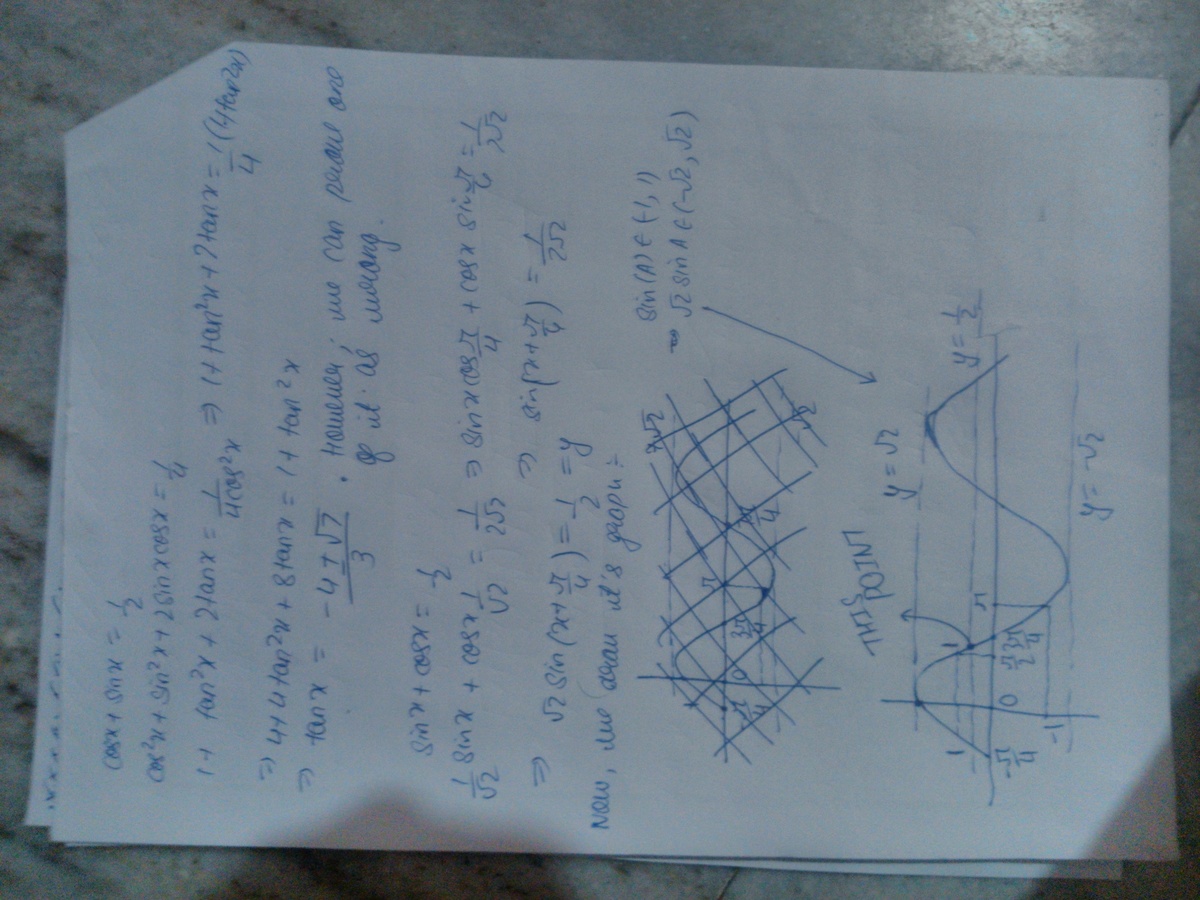 cosx + sinx = 1/2
cos²x + sin²x + 2sinxcosx = 1/4
1 + tan²x + 2tanx = 1/4cos²x ⇒ 1 + tan²x + 2tanx = 1/4(1+tan²x)
⇒ 4 + 4tan²x + 8tanx = 1 + tan²x
⇒ tanx = -4±√7/3 . However, we can prove one
of it as wrong.
sinx + cosx = 1/2
1/√2 sinx + cosx 1/√2 = 1/2√2 ⇒ sinx cosπ/4 + cosx sinπ/4 = 1/2√2
⇒ sin(x+π/4) = 1/2√2
⇒ √2 sin(x+π/4) = 1/2 = y
Now, we draw it's graph:
sin(A) ∈ (-1, 1)
⇒ √2 sinA ∈ (-√2, √2)
-π/4
0
3π/4
π
THIS
POINT
y = √2
y = 1/2
1
1
-π/4
0
π/2
3π/4
π
-1
y = -√2